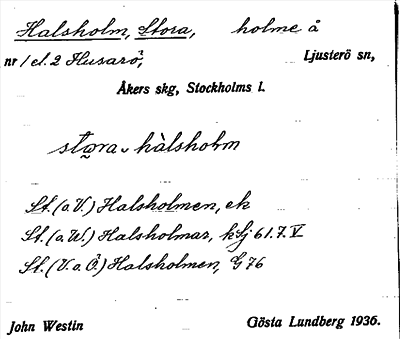 Halsholm, Stora, holme å
nr 1 el. 2 Husarö, Ljusterö sn,
Åkers skg, Stockholms l.
stora hàlsholm
St. (o.V.) Halsholmen, ek
St. (o.W.) Halsholmar, kSj 61.7.V
St. (V.o.Ö.) Halsholmen, G 76
John Westin Gösta Lundberg 1936.